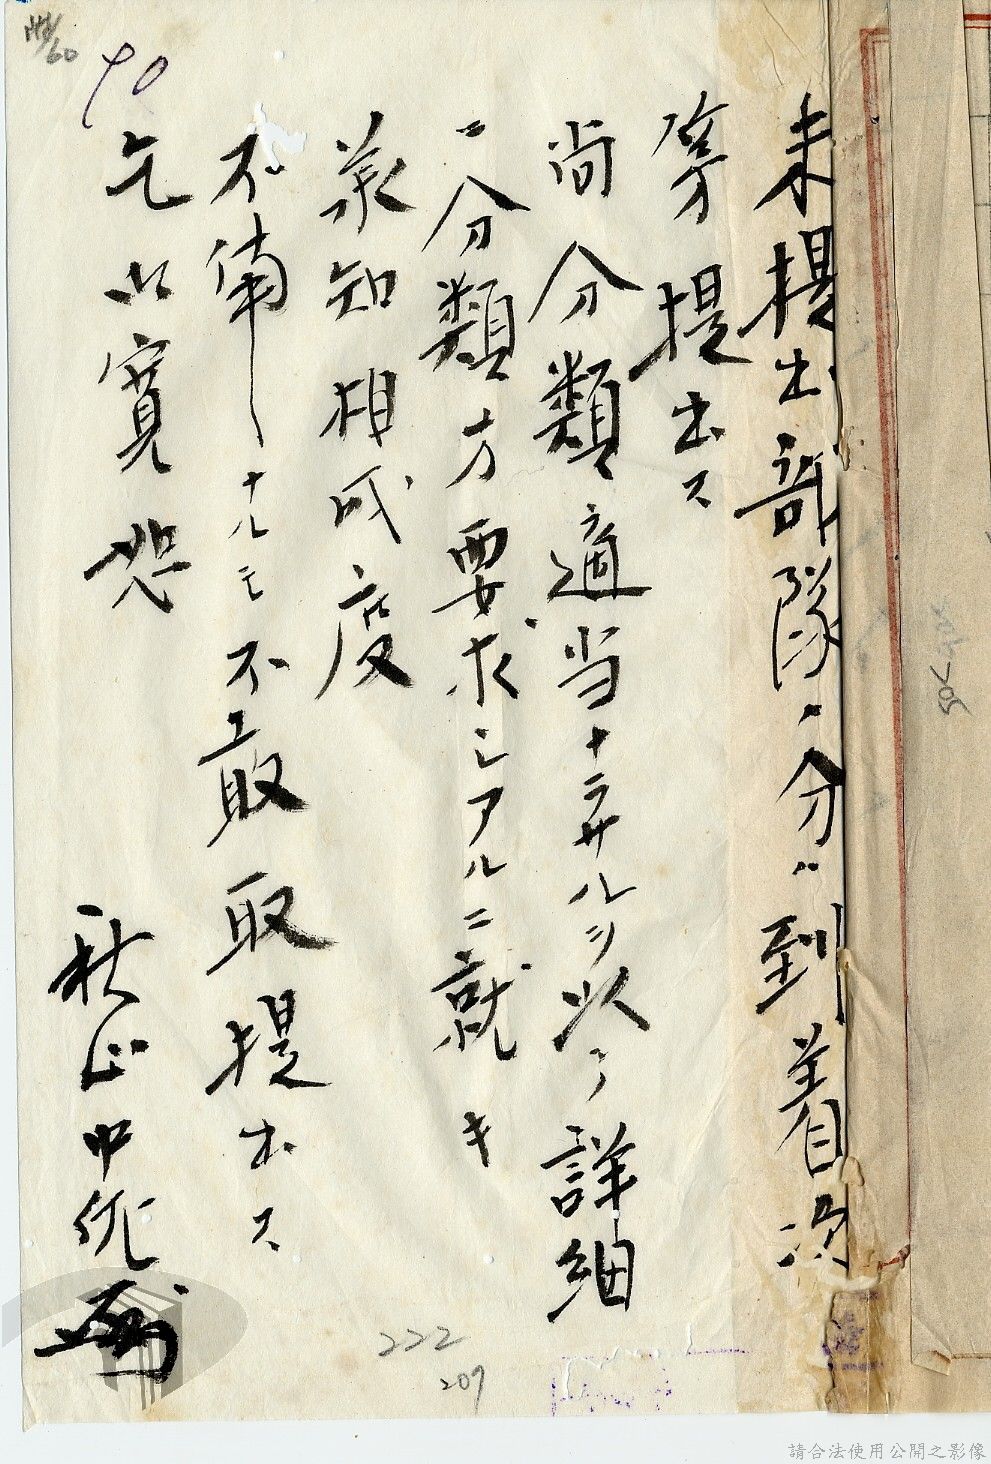 未提出部隊ノ分ハ到着次
第提出ス
尚分類適当ナラサルヲ以テ詳細
ニ分類方要求シアルニ就キ
承知相成度
不備ナルモ不取敢取提出ス
乞御寛恕
秋山中佐
90
222
209
請合法使用公開之影像